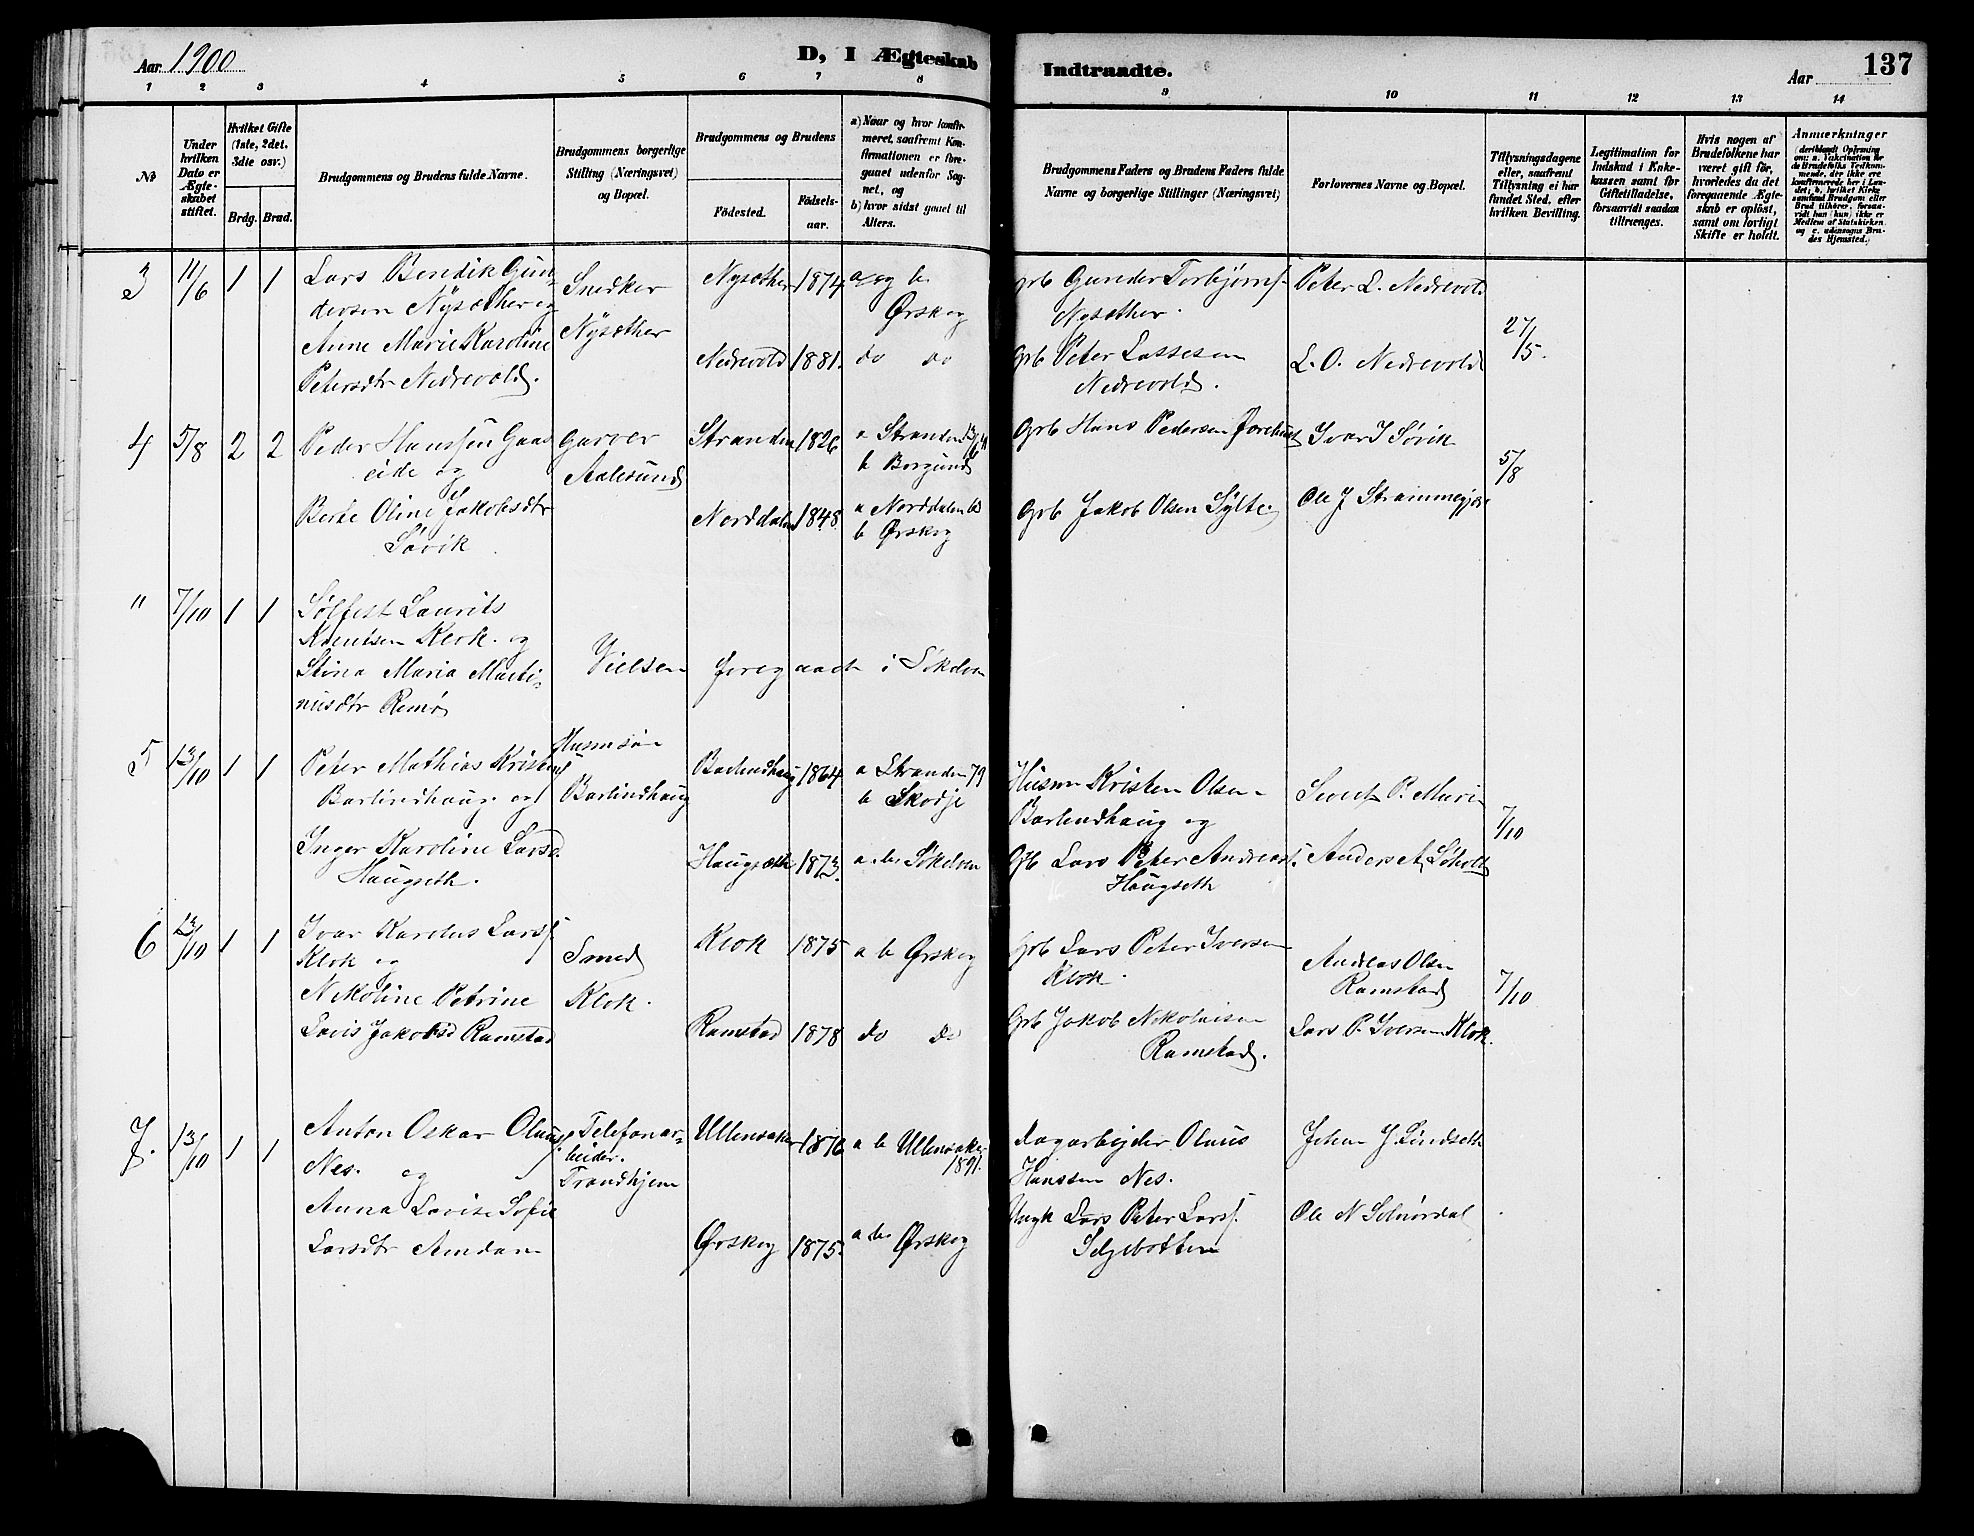 Aar 1900
D, I Ægteskab
Indtraadte.
Aar
137
1 2 3 4 5 6 7 8 9 10 11 12 13 14
No
Under hvilken Dato er Ægteskabet stiftet.
Hvilket Gifte (1ste, 2det, 3die osv.)
Brdg. Brud.
Brudgommens og Brudens fulde Navne.
Brudgommens borgerlige Stilling (Næringsvei) og Bopæl.
Brudgommens og Brudens
Fødested.
Fødselsaar.
a) Naar og hvor konfirmeret, saafremt Konfirmationen er foregaaet udenfor Sognet, og
b) hvor sidst gaaet til Alters.
Brudgommens Faders og Brudens Faders fulde Navne og borgerlige Stillinger (Næringsvei)
Forlovernes Navne og Bopæl.
Tillysningsdagene eller, saafremt Tillysning ei har fundet Sted, efter hvilken Bevilling.
Legitimation for Indskud i Enkekassen samt for Giftetilladelse, forsaavidt saadan tiltrænges.
Hvis nogen af Brudefolkene har været gift før, hvorledes da det foregaaende Ægteskab er opløst, samt om lovligt Skifte er holdt.
Anmærkninger
3 11/6 1 1
Lars Bendik Gundersen Nysæther og
Anne Marie Karoline
Petersdtr Nedrevold.
Snedker
Nysæther
Nysæther 1874 a og b
Ørskog
Nedrevold 1881. do do
Grb Gunder Torbjørns.
Nysæther.
Grb Peter Lassesen
Nedrevold.
Peter L. Nedrevold
L. O. Nedrevold
27/5.
4 5/8 2 2
Peder Hanssen Gaaseide og
Berte Oline Jakobsdtr
Søvik
Garver
Aalesund
Stranden 1826 a Stranden
b Borgund
Norddalen 1848 a Norddalen 63
b Ørskog
Grb Hans Pedersen
Grb Jakob Olsen Sylte.
Ivar J Søvik
Ole J
5/8
" 7/10 1 1
Sølfest Laurits
Knutsen Klok. og
Stina Maria Martinusdtr Remø
Vielsen foregaaet i Søkelven
5 13/10 1 1
Peter Mathias Kristens
Barlindhaug og
Inger Karoline Larsd.
Haugseth.
Husmsøn
Barlindhaug
Barlindhaug 1864 a Stranden 79
b Skodje
Haugsæth 1873. a b Søkelven
Husm Kristen Olsen
Barlindhaug og
Grb Lars Peter Andreass.
Haugseth
P. Murin
Anders A. Søholt
7/10
6 13/10 1 1
Ivar Karolus Larss.
Klok og
Nikoline Petrine
Lovis Jakobsd Ramstad
Smed
Klok.
Klok 1875 a b Ørskog
Ramstad 1878 do do
Grb Lars Peter Iversen
Klok.
Grb Jakob Nikolaisen
Ramstad.
Andreas Olsen
Ramstad
Lars P. Iversen Klok.
7/10
7. 13/10 1 1
Anton Oskar Olaus.
Nes. og
Anna Lovise Sofie
Larsdtr Amdam
Telefonarbeider.
Trondhjem
Ullensaker 1876 a b Ullensaker
1891.
Ørskog 1875. a b Ørskog
Dagarbejder Olaus
Hanssen Nes.
Ungk Lars Peter Larss.
Selgebotten
Johan J. Lindseth
Ole N Solnørdal